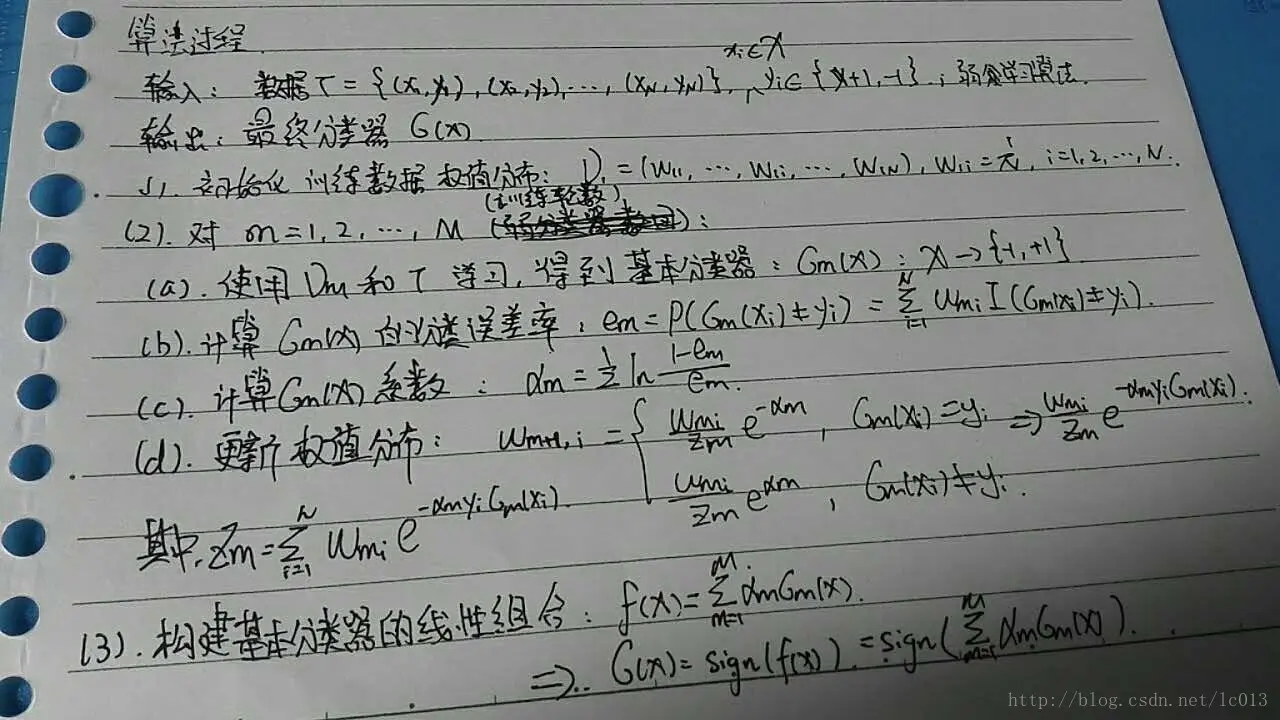 算法过程.
输入: 数据T = {(x₁,y₁), (x₂,y₂), ..., (x_N,y_N)}, x_i∈X, y_i∈{+1,-1}; 弱学习算法.
输出: 最终分类器 G(x)
(1). 初始化训练数据权值分布: D₁ = (w₁₁, ..., w₁ᵢ, ..., w₁N), w₁ᵢ = 1/N, i=1,2,...,N.
(2). 对 m=1,2,...,M (训练轮数):
(a). 使用 Dm 和 T 学习, 得到基本分类器: Gm(x): X → {-1,+1}
(b). 计算 Gm(x) 的分类误差率: em = P(Gm(xi) ≠ yi) = Σ_{i=1}^{N} wmi I(Gm(xi) ≠ yi).
(c). 计算 Gm(x) 系数: αm = 1/2 ln (1-em)/em.
(d). 更新权值分布: w_{m+1,i} = { wmi/Zm e^{-αm}, Gm(xi) = yi ⇒ wmi/Zm e^{-αm yi Gm(xi)}.
wmi/Zm e^{αm}, Gm(xi) ≠ yi.
其中, Zm = Σ_{i=1}^{N} wmi e^{-αm yi Gm(xi)}.
(3). 构建基本分类器的线性组合: f(x) = Σ_{m=1}^{M} αm Gm(x).
⇒ G(x) = sign(f(x)) = sign(Σ_{m=1}^{M} αm Gm(x)).
http://blog.csdn.net/lc013